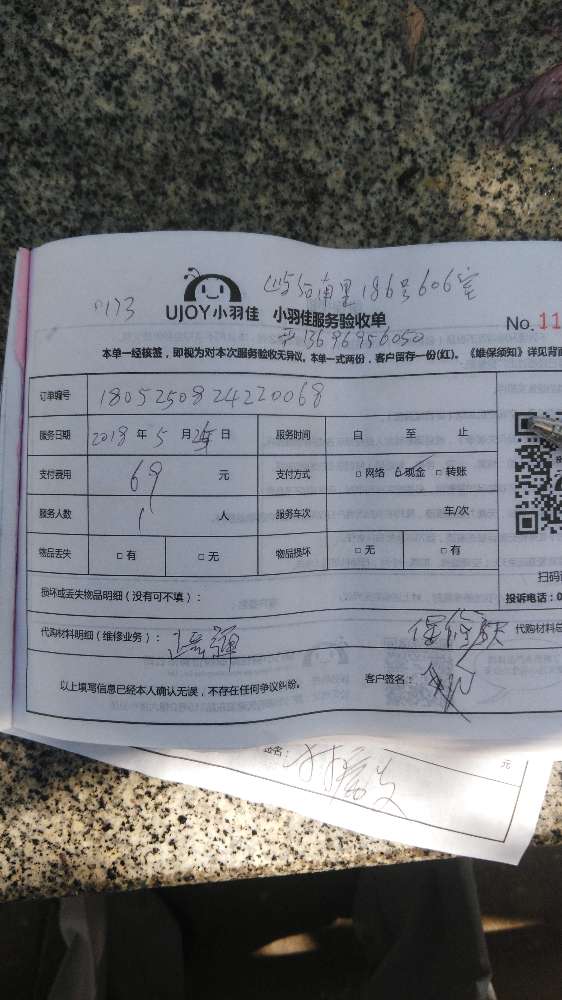 南里186号606室
0173
UJOY小羽佳 小羽佳服务验收单
No.11
13696956050
本单一经核签，即视为对本次服务验收无异议。本单一式两份，客户留存一份(红)。《维保须知》详见背面
订单编号 18052508242220068
服务日期 2018 年 5 月 25 日 服务时间 自 至 止
支付费用 69 元 支付方式 □ 网络 □ 现金 □ 转账
服务人数 1 人 服务车次 车/次
物品丢失 □ 有 □ 无 物品损坏 □ 无 □ 有
扫码
损坏或丢失物品明细（没有可不填）：
投诉电话：0
代购材料明细（维修业务）： 代购材料总
以上填写信息已经本人确认无误，不存在任何争议纠纷。 客户签名：
签名：
元